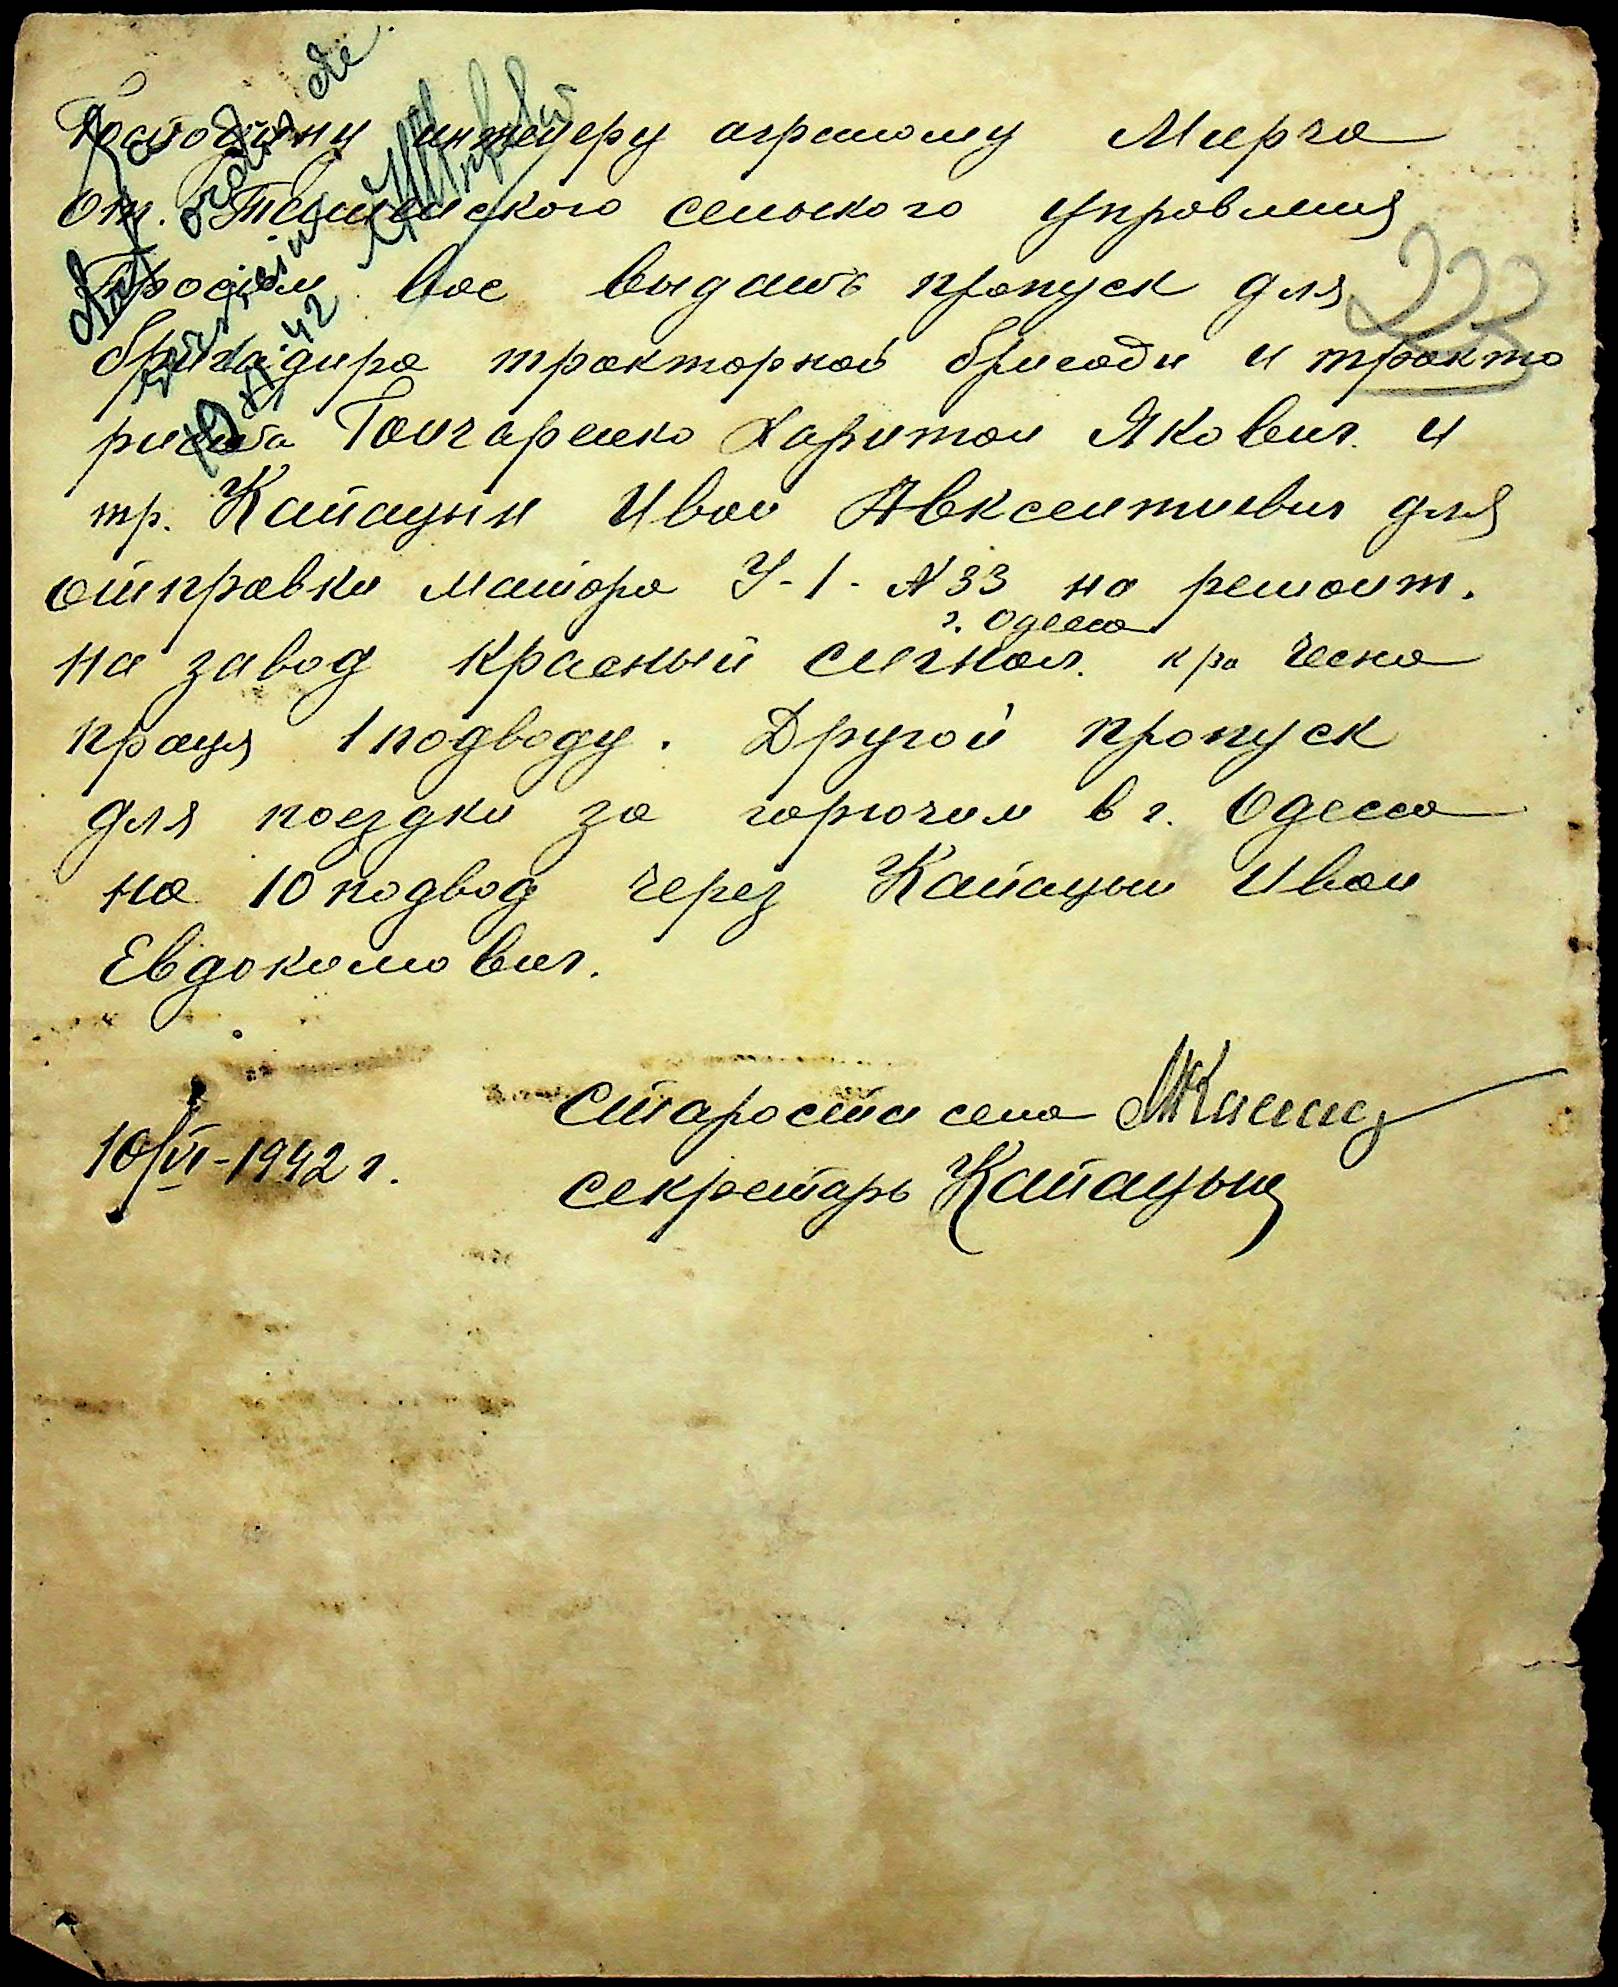 Господину инженеру агроному Мирча
от. сельского управления
Просим вас выдать пропуск для
бригадира тракторной бригади и тракто
риста Гончаренко Харитон Якович. и
тр. Капацын Иван Авксентиевич для
отправки матора У-1-N33 на ремонт.
г. Одесса
на завод красный сигнал. к/за Чесна
праця 1 подводу. Другой пропуск
для поездки за горючим в г. Одесса
на 10 подвод через Капацын Иван
Евдокимович.
Староста села
10/VI-1942 г.
секретарь Капацын
223